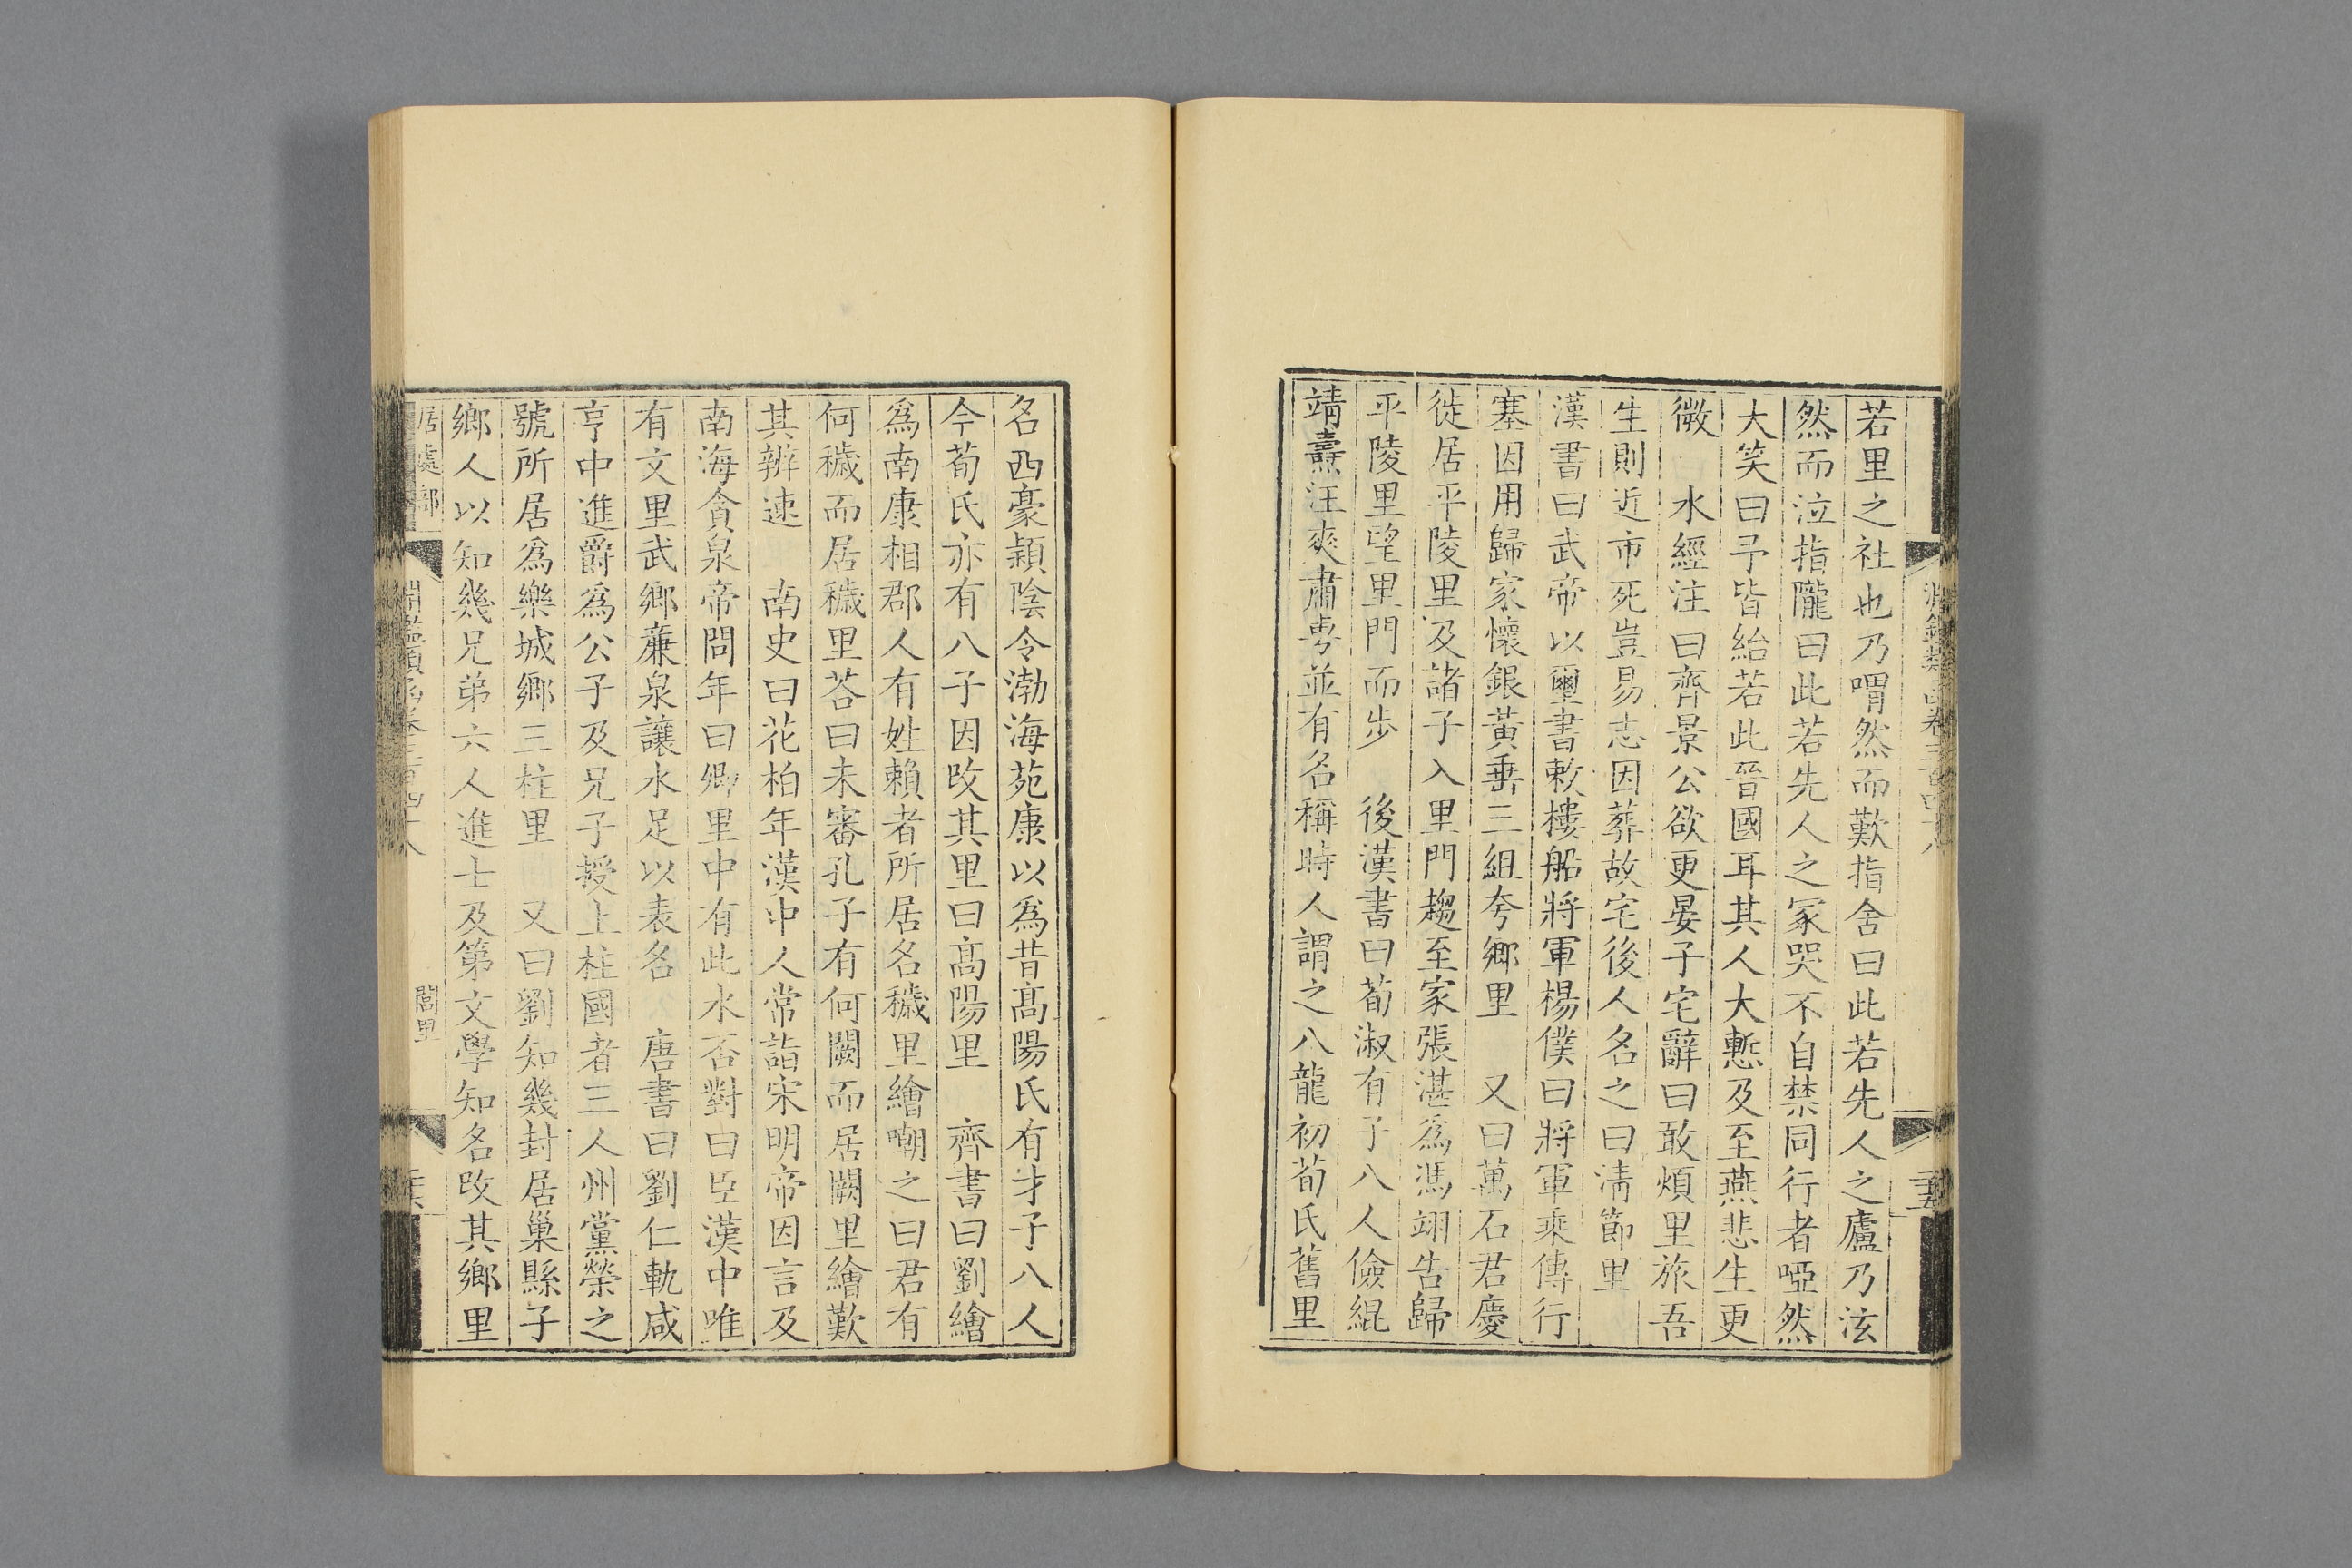 若里之社也乃喟然而歎指舍曰此若先人之廬乃泫
然而泣指隴曰此若先人之冢哭不自禁同行者啞然
大笑曰予皆紿若此晉國耳其人大慙及至燕悲生更
微　水經注曰齊景公欲更晏子宅辭曰敢煩里旅吾
生則近市死豈易志因葬故宅後人名之曰淸節里
漢書曰武帝以璽書敕樓船將軍楊僕曰將軍乘傳行
塞因用歸家懷銀黃垂三組夸鄉里　又曰萬石君慶
徙居平陵里及諸子入里門趨至家張湛爲馮翊告歸
平陵里望里門而步　後漢書曰荀淑有子八人儉緄
靖燾汪爽肅旉並有名稱時人謂之八龍初荀氏舊里
名西豪潁陰令渤海苑康以爲昔髙陽氏有才子八人
今荀氏亦有八子因改其里曰髙陽里　齊書曰劉繪
爲南康相郡人有姓賴者所居名穢里繪嘲之曰君有
何穢而居穢里荅曰未審孔子有何闕而居闕里繪歎
其辨速　南史曰花柏年漢中人常詣宋明帝因言及
南海貪泉帝問年曰卿里中有此水否對曰臣漢中唯
有文里武鄉亷泉讓水足以表名　唐書曰劉仁軌咸
亨中進爵爲公子及兄子授上柱國者三人州黨榮之
號所居爲樂城鄉三柱里　又曰劉知幾封居巢縣子
鄉人以知幾兄弟六人進士及第文學知名改其鄉里
居處部
淵鑑類函卷三百四十八
閭里